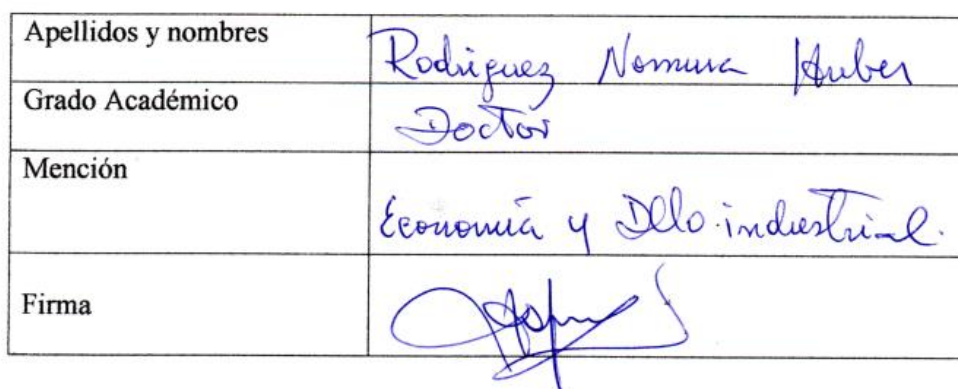 Apellidos y nombres
Rodriguez Nomura Huber
Grado Académico
Doctor
Mención
Economía y Dllo. industrial.
Firma